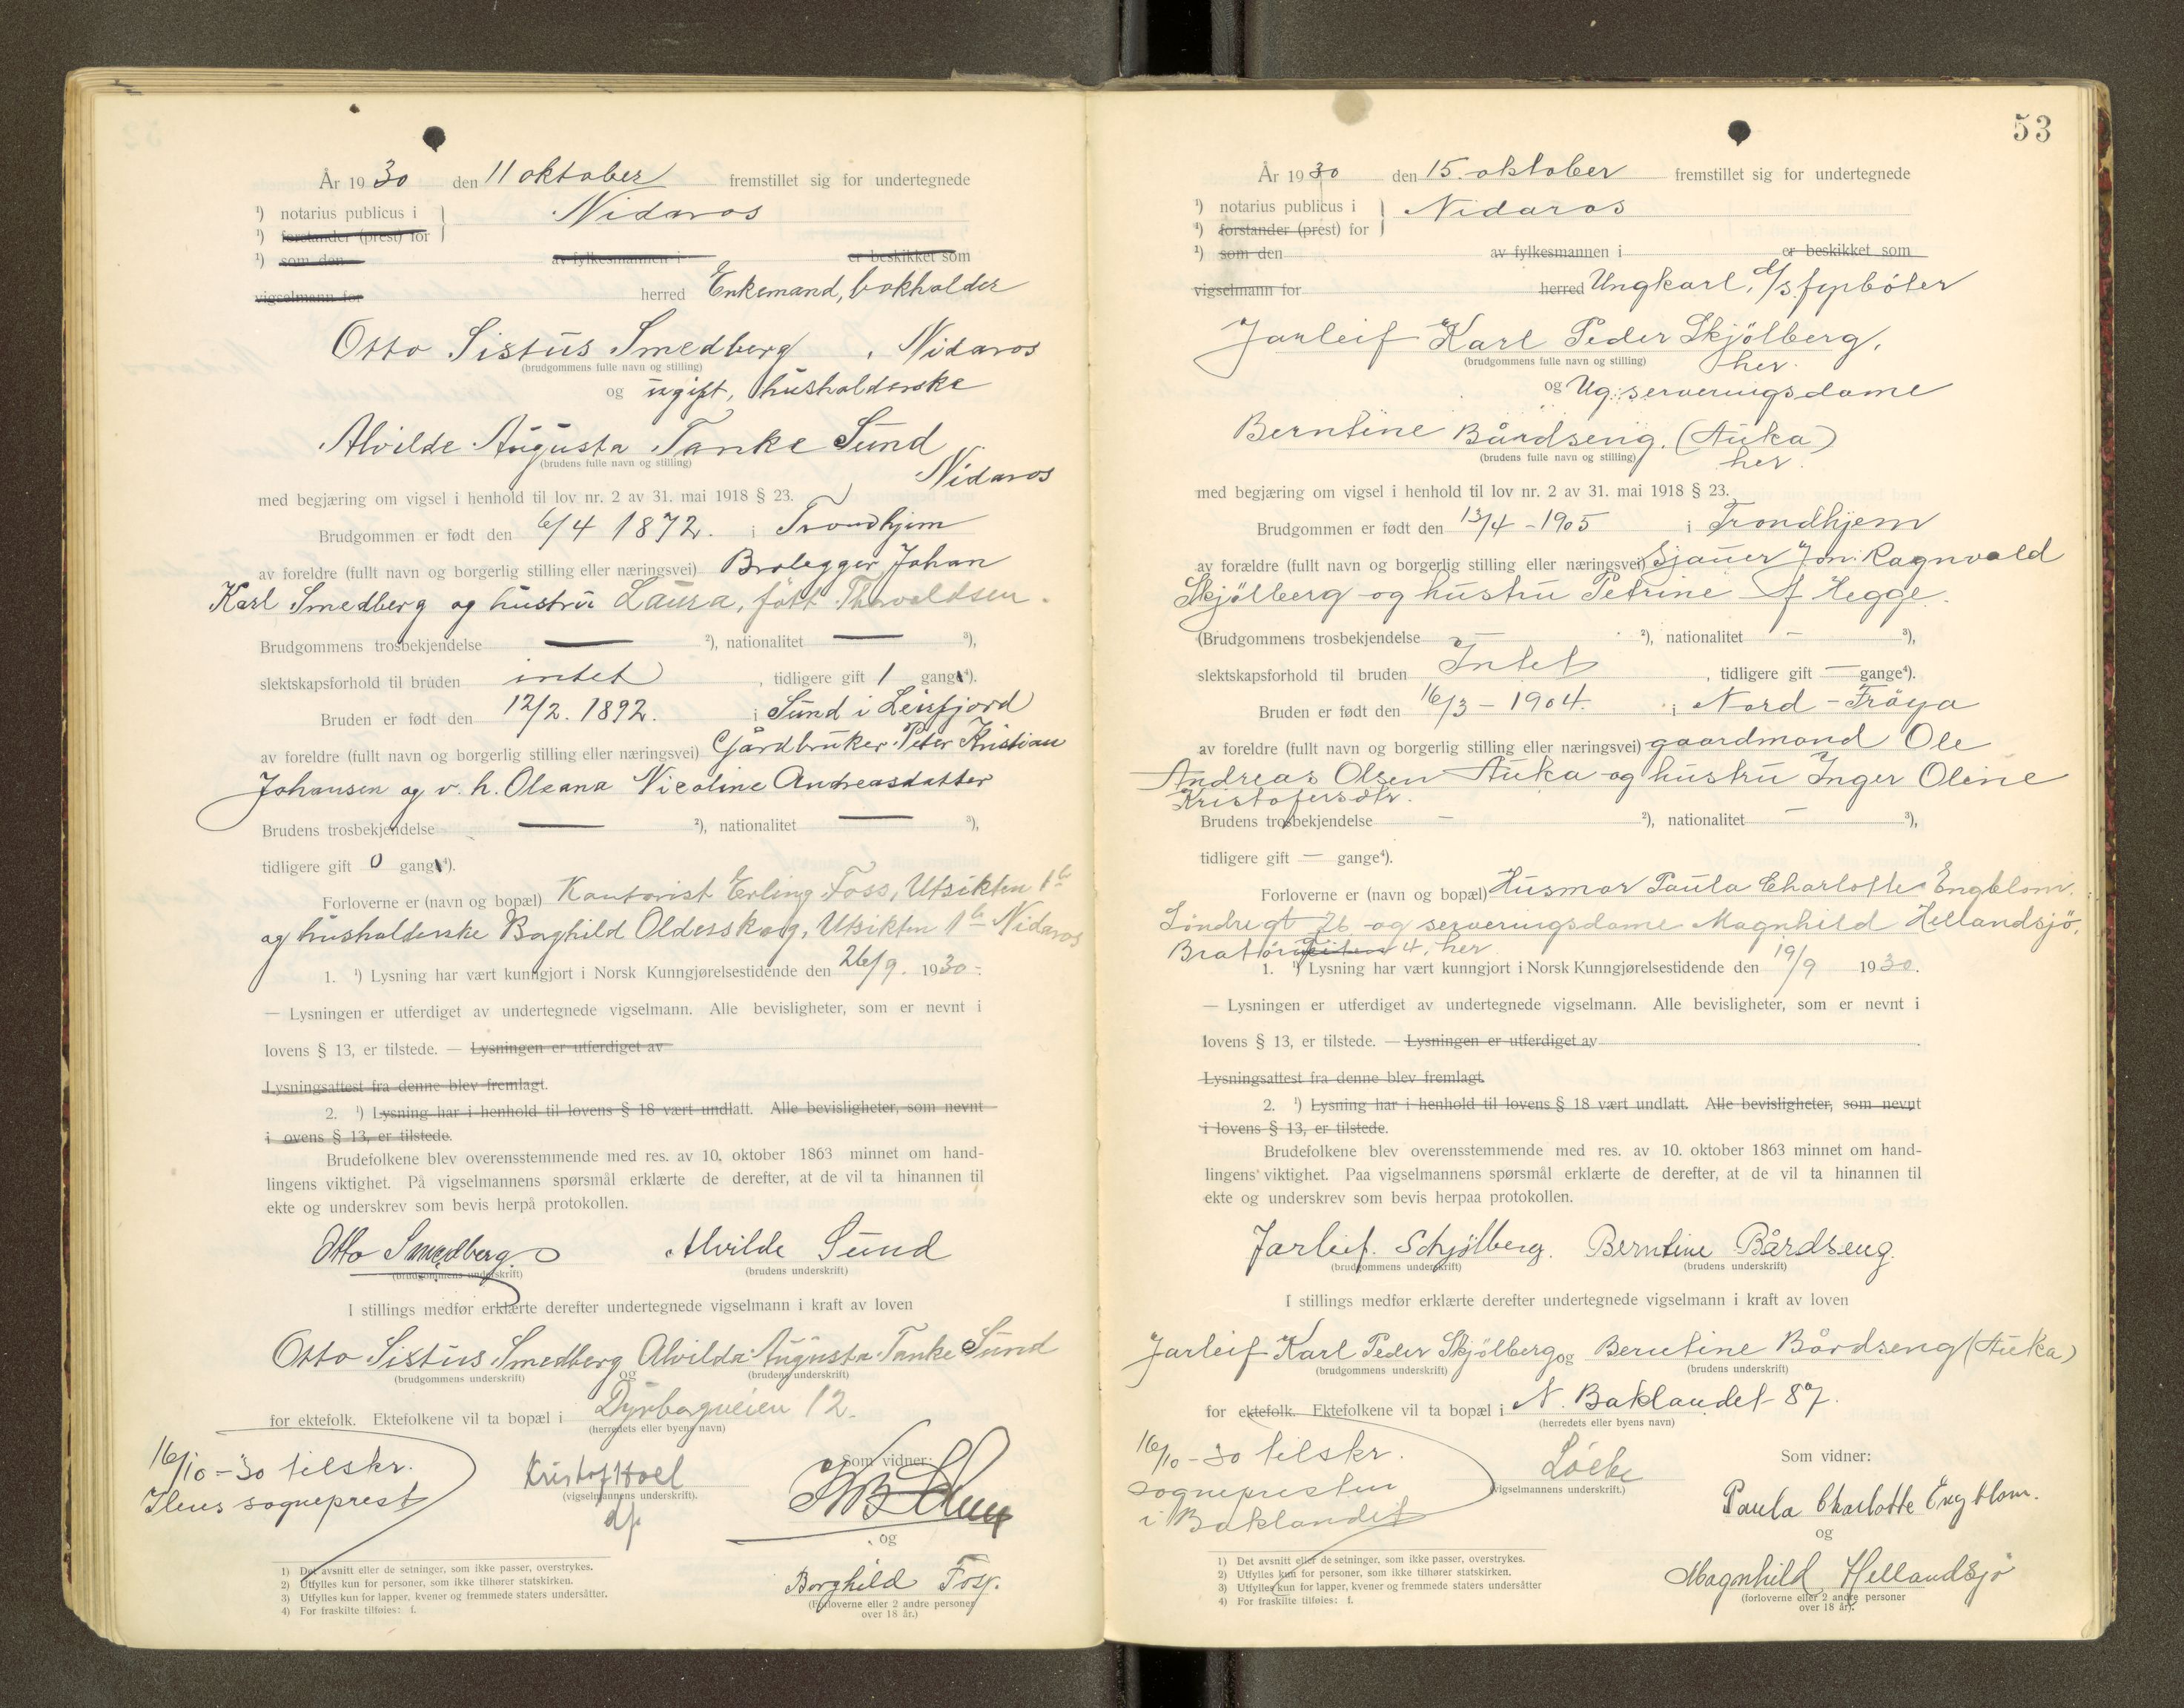 År 1930 den 11 oktober fremstillet sig for undertegnede
¹) notarius publicus i Nidaros
¹) forstander (prest) for
¹) som den av fylkesmannen i er beskikket som
vigselmann for herred Enkemand, bokholder
Otto Sistus Smedberg, Nidaros
(brudgommens fulle navn og stilling)
og ugift, husholderske
Alvilde Augusta Tanke Sund
(brudens fulle navn og stilling)
Nidaros
med begjæring om vigsel i henhold til lov nr. 2 av 31. mai 1918 § 23.
Brudgommen er født den 6/4 1872. i Trondhjem
av foreldre (fullt navn og borgerlig stilling eller næringsvei) Brolegger Johan
Karl Smedberg og hustru Laura, født Thorvaldsen.
Brudgommens trosbekjendelse — ²), nationalitet — ³),
slektskapsforhold til bruden intet, tidligere gift 1 gang⁴).
Bruden er født den 12/2. 1892. i Sund i Leirfjord
av foreldre (fullt navn og borgerlig stilling eller næringsvei) Gårdbruker Peter Kristian
Johansen og v. h. Oleana Nicoline Andreasdatter
Brudens trosbekjendelse — ²), nationalitet — ³),
tidligere gift 0 gang⁴).
Forloverne er (navn og bopæl) Kontorist Erling Foss, Utsikten 1
og husholderske Borghild Oldersskog, Utsikten 1 Nidaros
1. ¹) Lysning har vært kunngjort i Norsk Kunngjørelsestidende den 26/9. 1930.
— Lysningen er utferdiget av undertegnede vigselmann. Alle bevisligheter, som er nevnt i
lovens § 13, er tilstede. — Lysningen er utferdiget av
Lysningsattest fra denne blev fremlagt.
2. ¹) Lysning har i henhold til lovens § 18 vært undlatt. Alle bevisligheter, som nevnt
i ovens § 13, er tilstede.
Brudefolkene blev overensstemmende med res. av 10. oktober 1863 minnet om hand-
lingens viktighet. På vigselmannens spørsmål erklærte de derefter, at de vil ta hinannen til
ekte og underskrev som bevis herpå protokollen.
Otto Smedberg Alvilde Sund
(brudgommens underskrift) (brudens underskrift)
I stillings medfør erklærte derefter undertegnede vigselmann i kraft av loven
Otto Sistus Smedberg og Alvilda Augusta Tanke Sund
(brudgommens underskrift) (brudens underskrift)
for ektefolk. Ektefolkene vil ta bopæl i Dyrborgveien 12.
(herredets eller byens navn)
16/10-30 tilskr.
Ilens sogneprest
Kristof Hoel
(vigselmannens underskrift).
Som vidner:
og
Borghild Foss.
(Forloverne eller 2 andre personer
over 18 år.)
1) Det avsnitt eller de setninger, som ikke passer, overstrykes.
2) Utfylles kun for personer, som ikke tilhører statskirken.
3) Utfylles kun for lapper, kvener og fremmede staters undersåtter.
4) For fraskilte tilføies: f.
53
År 1930 den 15. oktober fremstillet sig for undertegnede
¹) notarius publicus i Nidaros
¹) forstander (prest) for
¹) som den av fylkesmannen i er beskikket som
vigselmann for herred Ungkarl, d/s fyrbøter
Jarleif Karl Peder Skjølberg,
(brudgommens fulle navn og stilling) her.
og Ug. serveringsdame
Berntine Bårdseng. (Auka)
(brudens fulle navn og stilling) her.
med begjæring om vigsel i henhold til lov nr. 2 av 31. mai 1918 § 23.
Brudgommen er født den 13/4 - 1905 i Trondhjem
av forældre (fullt navn og borgerlig stilling eller næringsvei) Sjauer Jon Ragnvald
Skjølberg og hustru Petrine f. Hegge.
(Brudgommens trosbekjendelse — ²), nationalitet — ³),
slektskapsforhold til bruden Intet, tidligere gift — gange⁴).
Bruden er født den 16/3 - 1904. i Nord-Frøya
av foreldre (fullt navn og borgerlig stilling eller næringsvei) gaardmand Ole
Andreas Olsen Auka og hustru Inger Oline
Kristofersdtr.
Brudens trosbekjendelse — ²), nationalitet — ³),
tidligere gift — gange⁴).
Forloverne er (navn og bopæl) Husmor Paula Charlotte Engblom.
Søndregt 26 og serveringsdame Magnhild Hellandsjø,
4, her
1. ¹) Lysning har vært kunngjort i Norsk Kunngjørelsestidende den 19/9 1930.
— Lysningen er utferdiget av undertegnede vigselmann. Alle bevisligheter, som er nevnt i
lovens § 13, er tilstede. — Lysningen er utferdiget av
Lysningsattest fra denne blev fremlagt.
2. ¹) Lysning har i henhold til lovens § 18 vært undlatt. Alle bevisligheter, som nevnt
i lovens § 13, er tilstede.
Brudefolkene blev overensstemmende med res. av 10. oktober 1863 minnet om hand-
lingens viktighet. Paa vigselmannens spørsmål erklærte de derefter, at de vil ta hinannen til
ekte og underskrev som bevis herpaa protokollen.
Jarleif. Schjølberg. Berntine Bårdseng.
(brudgommens underskrift) (brudens underskrift)
I stillings medfør erklærte derefter undertegnede vigselmann i kraft av loven
Jarleif Karl Peder Skjølberg og Berntine Bårdseng (Auka)
(brudgommens underskrift) (brudens underskrift)
for ektefolk. Ektefolkene vil ta bopæl i N. Baklandet 87.
(herredets eller byens navn)
16/10-30 tilskr.
sognepresten
i Baklandet
(vigselmannens underskrift.)
Som vidner:
Paula Charlotte Engblom.
og
Magnhild Hellandsjø
(forloverne eller 2 andre personer
over 18 år).
1) Det avsnitt eller de setninger, som ikke passer, overstrykes.
2) Utfylles kun for personer, som ikke tilhører statskirken.
3) Utfylles kun for lapper, kvener og fremmede staters undersåtter
4) For fraskilte tilføies: f.